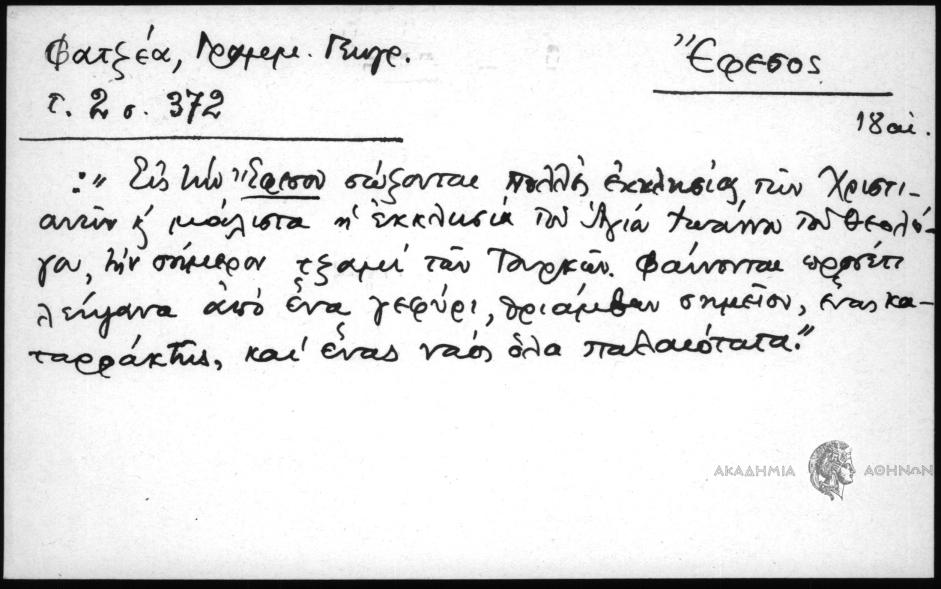 Φατζέα, Γραμμ. Γεωγρ.
τ. 2 σ. 372
Ἔφεσος
18 αἰ.
:" Εἰς τὴν Ἔφεσον σώζονται πολλὲς ἐκκλησίας τῶν Χριστι-
ανῶν κ̓ μάλιστα ἡ ἐκκλησία τοῦ Ἁγίου Ἰωάννου τοῦ Θεολό-
γου, τὴν σήμερον τζαμὶ τῶν Τουρκῶν. Φαίνονται προσέτι
λείψανα ἀπὸ ἕνα γεφύρι, θριάμβων σημεῖον, ἕνας κα-
ταρράκτης, καὶ ἕνας ναός ὅλα παλαιότατα."
ΑΚΑΔΗΜΙΑ ΑΘΗΝΩΝ